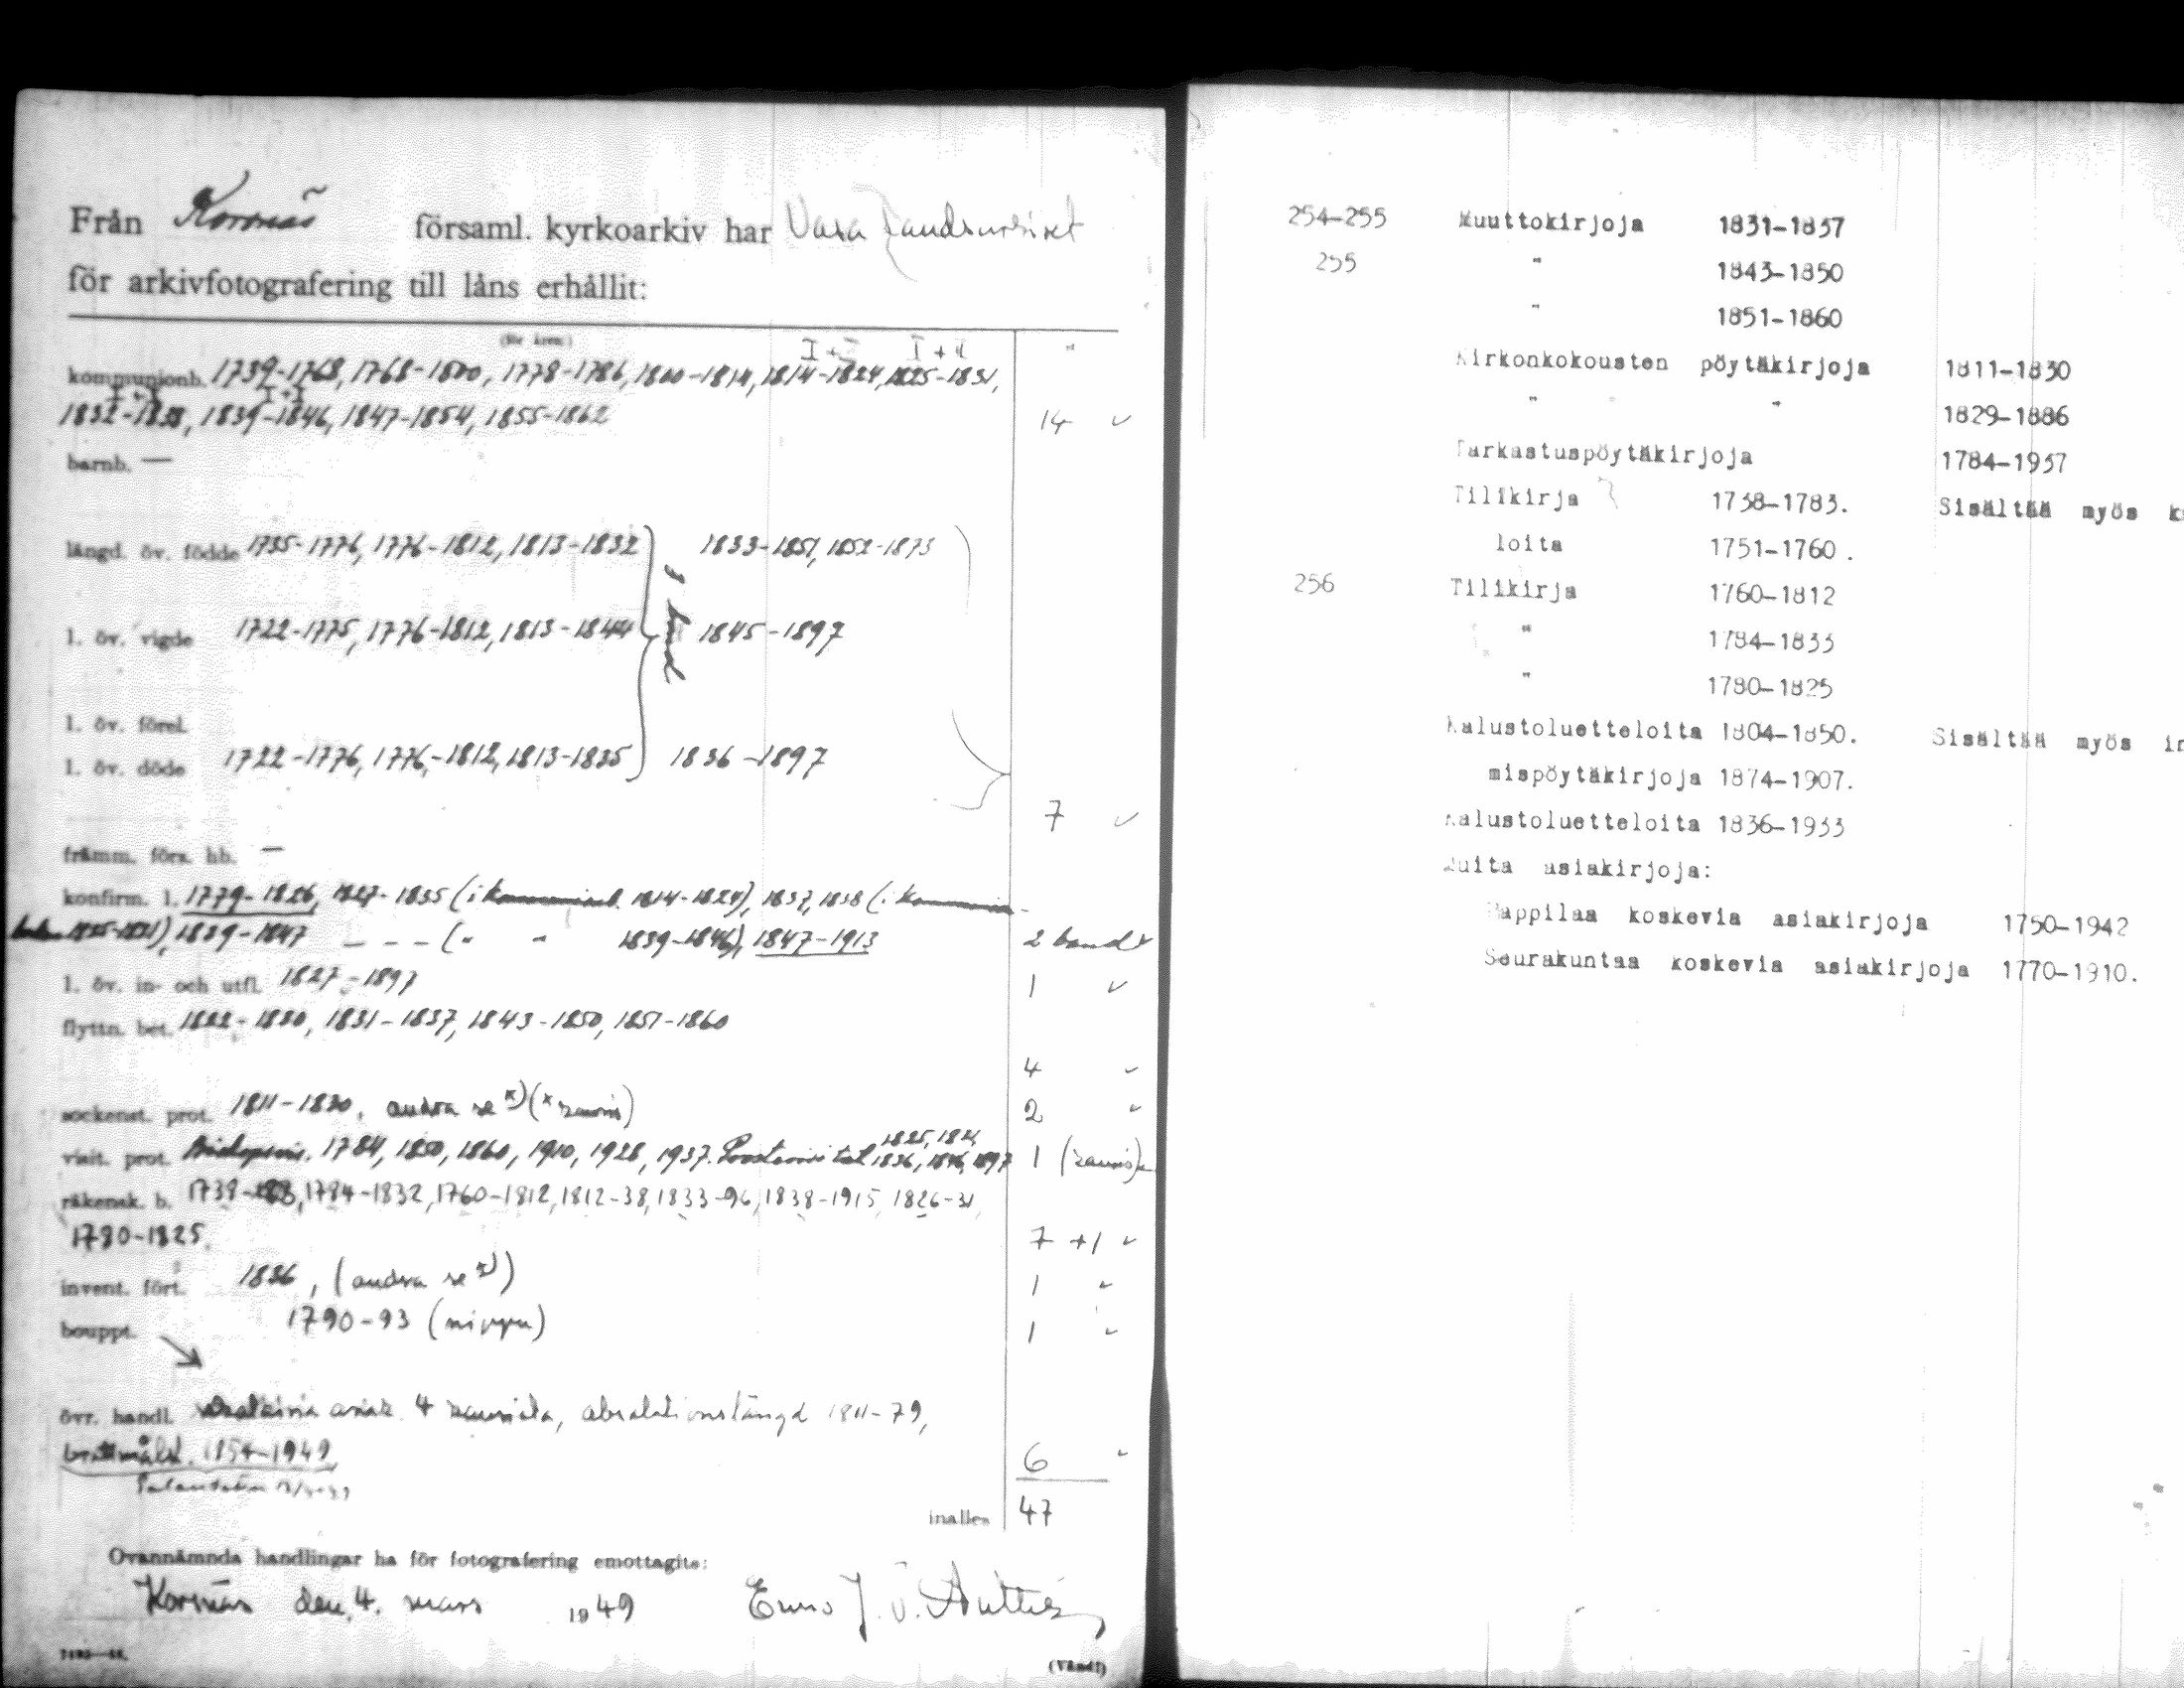 Från Korsnäs församl. kyrkoarkiv har Vasa Landsarkivet
för arkivfotografering till låns erhållit:
(för åren:)
I+I I+II
kommunionb. 1739-1768, 1768-1800, 1778-1786, 1800-1814, 1814-1824, 1825-1831,
I+I I+I
1832-1838, 1839-1846, 1847-1854, 1855-1862 14 ✓
barnb. —
längd. öv. födde 1735-1776, 1776-1812, 1813-1832 1833-1851, 1852-1873
l. öv. vigde 1722-1775, 1776-1812, 1813-1844 1845-1897
l. öv. förel.
l. öv. döde 1722-1776, 1776-1812, 1813-1835 1836-1897
7 ✓
främm. förs. hb. —
konfirm. l. 1779-1826, 1827-1835 (i 1814-1824), 1837, 1838 (i
1825-1831), 1839-1847 --- (" " 1839-1846), 1847-1913 2 band ✓
l. öv. in- och utfl. 1827-1897 1 ✓
flyttn. bet. 1822-1830, 1831-1837, 1843-1850, 1851-1860
4 ✓
sockenst. prot. 1811-1830, andra se x) 2 ✓
1825, 1831,
visit. prot. Biskopsvis. 1784, 1850, 1860, 1910, 1928, 1937. 1836, 1846, 1897 1
räkensk. b. 1784-1832, 1760-1812, 1812-38, 1833-96, 1838-1915, 1826-31,
1780-1825. 7 +1 ✓
invent. fört. 1836, (andra se x)) 1 ✓
bouppt. 1790-93 (nippu) 1 ✓
övr. handl. asiak. 4 absolutionslängd 1811-79,
1854-1949 6 ✓
inalles 47
Ovannämnda handlingar ha för fotografering emottagits:
Korsnäs den 4. mars 1949
(Vänd!)
254-255 Muuttokirjoja 1831-1837
255 " 1843-1850
" 1851-1860
Kirkonkokousten pöytäkirjoja 1811-1830
" " " 1829-1886
Tarkastuspöytäkirjoja 1784-1937
Tilikirja 1738-1783. Sisältää myös
loita 1751-1760.
256 Tilikirja 1760-1812
" 1784-1833
" 1780-1825
Kalustoluetteloita 1804-1850. Sisältää myös
mispöytäkirjoja 1874-1907.
Kalustoluetteloita 1836-1933
Muita asiakirjoja:
Pappilaa koskevia asiakirjoja 1750-1942
Seurakuntaa koskevia asiakirjoja 1770-1910.